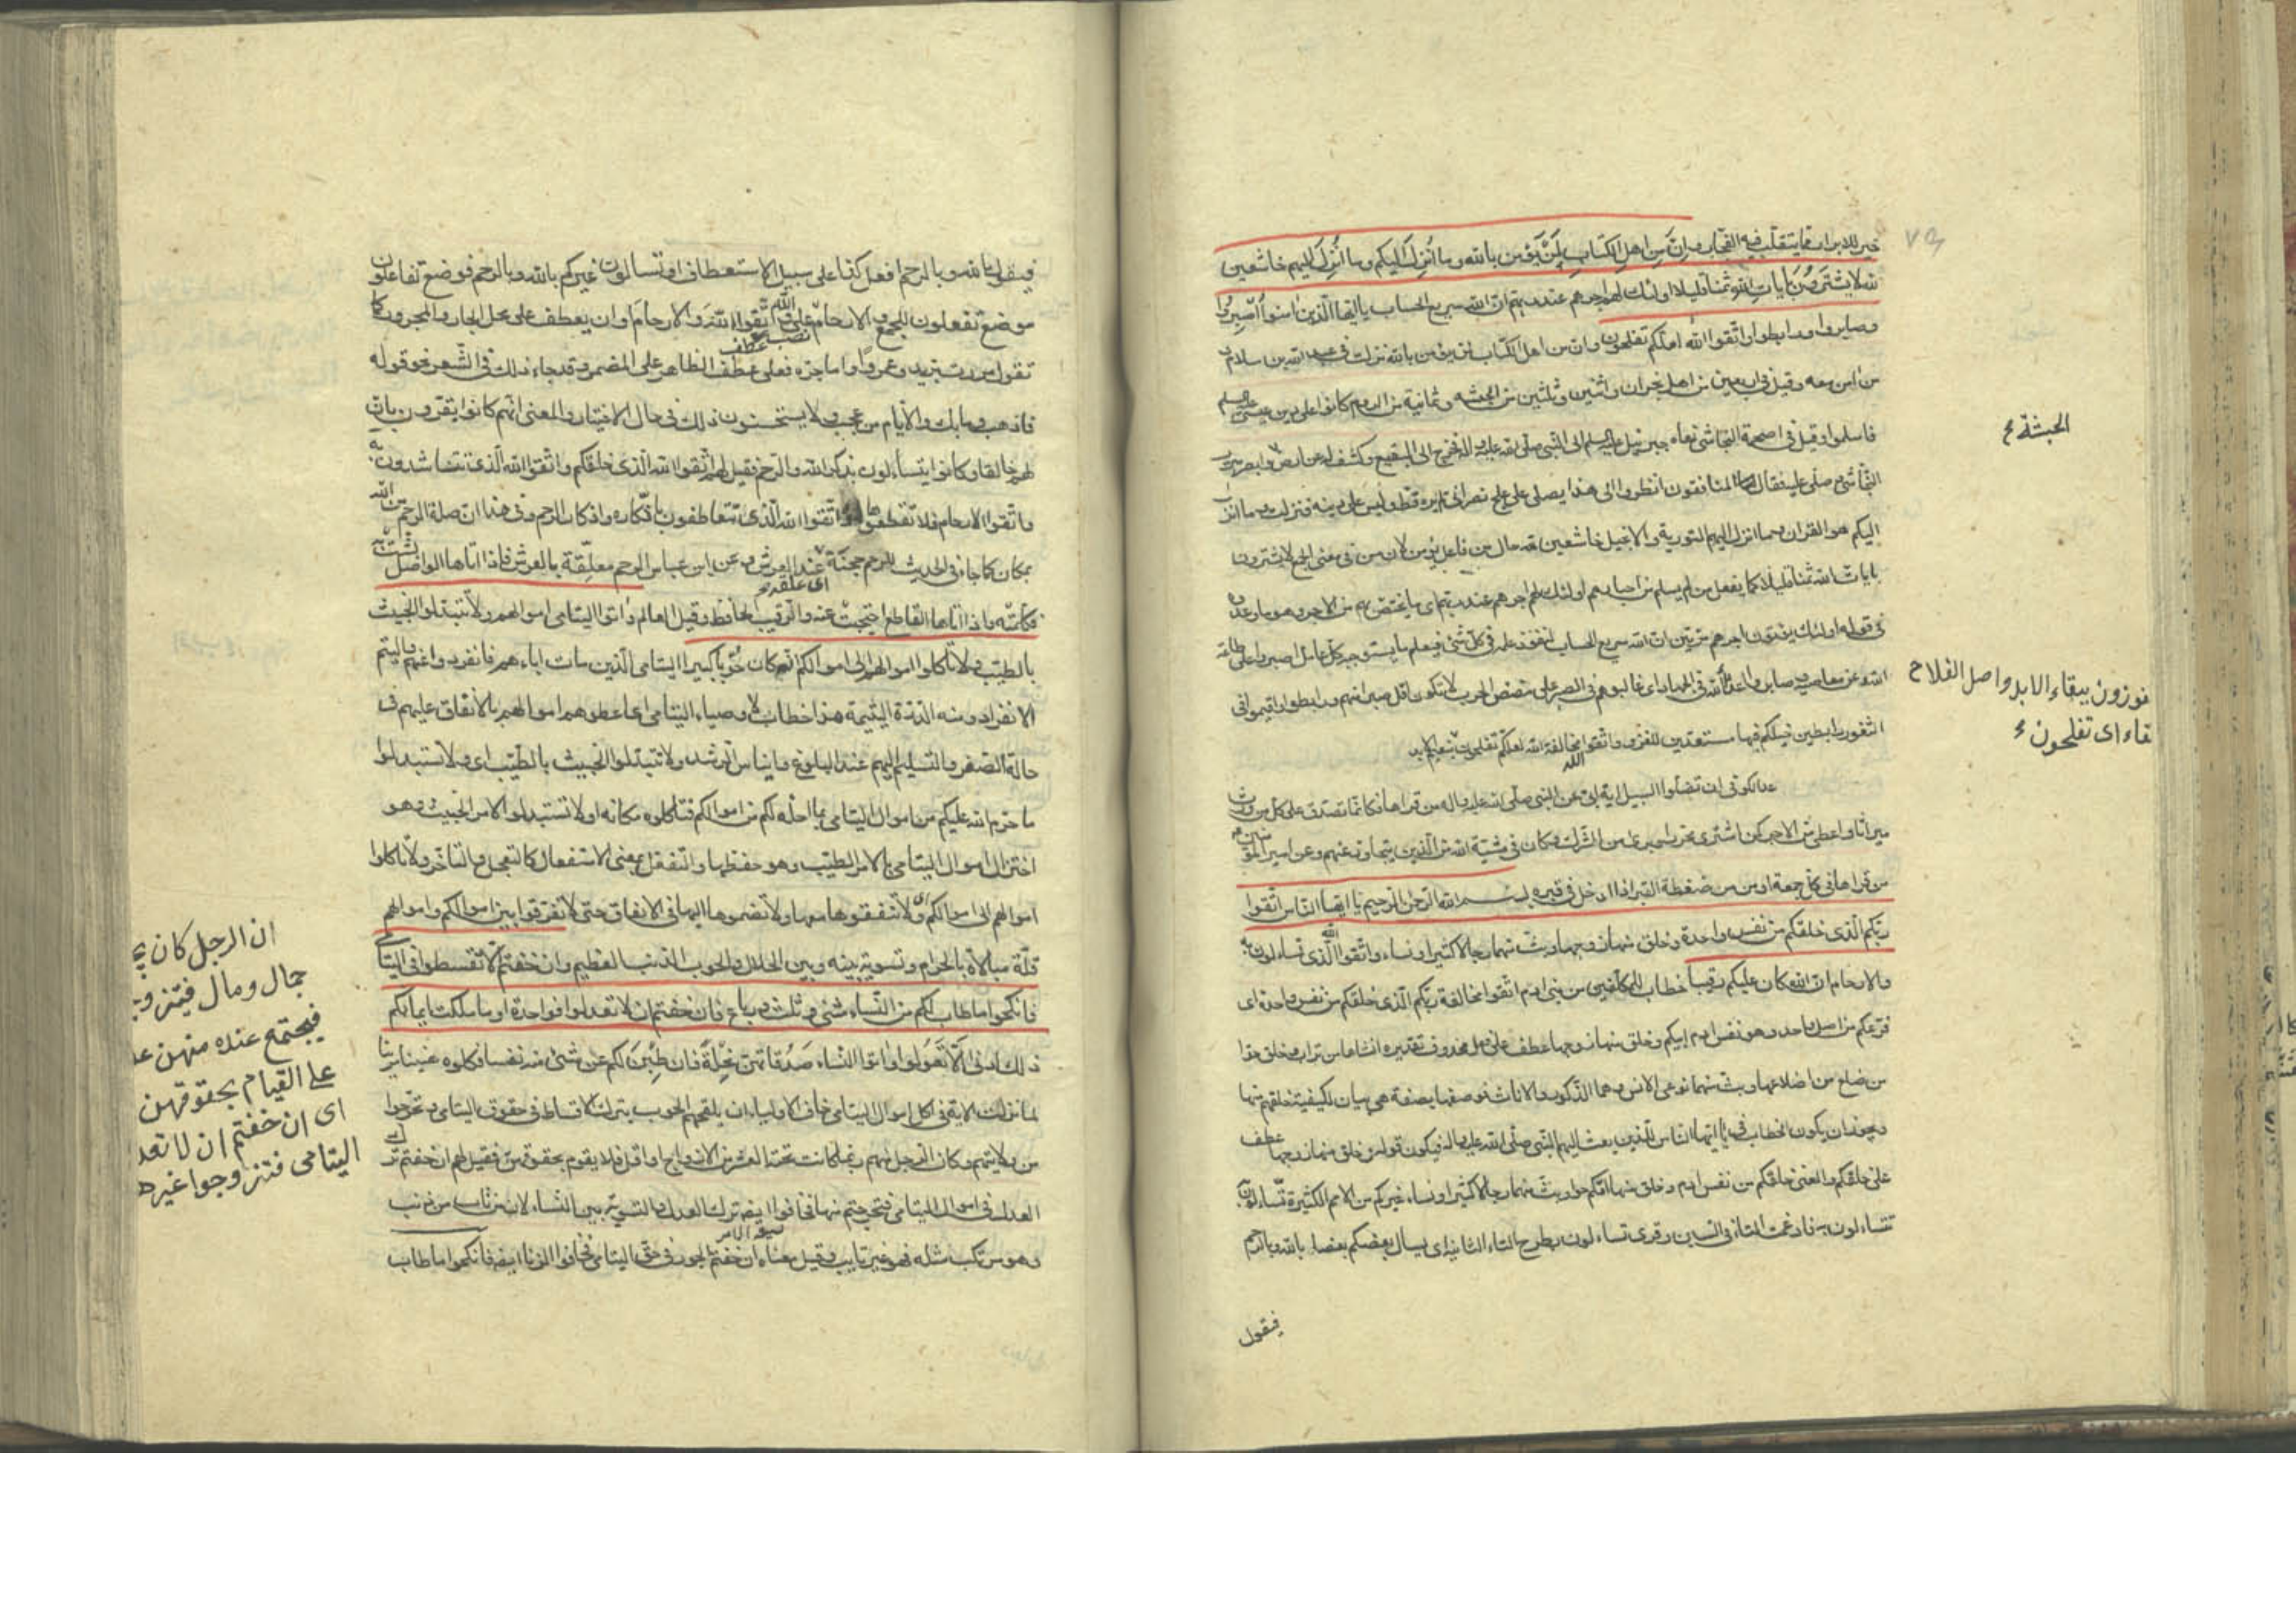 خير للابرار مما يتقلب فيه الفجار وَاِنَّ مِن اهلِ الكتابِ لَمَنْ يُؤمِن بالله وما اُنزِلَ اليكم وما اُنزِلَ اليهم خاشعين
لله لا يشترُونَ بآيات اللهِ ثمنا قليلا اولئك لهم اجرهم عند ربهم ان الله سريع الحساب يا ايها الّذين امنوا اصْبِرُوا
وصابروا ورابطوا واتقوا الله لعلكم تفلحون وان من اهل الكتاب لمن يؤمن بالله نزلت في عبد الله بن سلام و
من امن معه وقيل في اربعين من اهل نجران واثنين وثلثين من الحبشه وثمانية من الروم كانوا على دين عيسى عليه السلم
فاسلموا وقيل في اصحمة النجاشي نعاه جبرئيل عليه السلم الى النبي صلى الله عليه واله فخرج الى البقيع وكشف له عن ارض وابصر سرير
النجاشي وصلى عليه فقال المنافقون انظروا الى هذا يصلى على علج نصراني لم يره قط وليس على دينه فنزلت وما انزل
اليكم هو القران وما انزل اليهم التورية والانجيل خاشعين لله حال من فاعل يؤمن لان من في معنى الجمع لا يشترون
بايات الله ثمنا قليلا كما يفعل من لم يسلم من احبارهم اولئك لهم اجرهم عند ربهم اى ما يختص بهم من الاجر وهو ما وعدوه
في قوله اولئك يؤتون اجرهم مرتين ان الله سريع الحساب لنفوذ علمه في كل شئ فيعلم ما يستوجبه كل عامل اصبروا على طاعة
الله وعن معاصيه وصابروا اعداء الله في الجهاد اى غالبوهم في الصبر على مضض الحرب لا تكونوا اقل صبرا منهم ورابطوا اقيموا في
الثغور رابطين خيلكم فيها مستعدين للغزو واتقوا مخالفة الله لعلكم تفلحون بنعيم الابد
ان تضلوا السبيل اية ابى عن النبي صلى الله عليه واله من قراها فكانما تصدق على كل من ورث
ميراثا واعطى من الاجر كمن اشترى محررا وبرئ من الشرك وكان في مشية الله من الّذين يتجاوز عنهم وعن امير المؤمنين
من قراها في كل جمعة اومن من ضغطة القبر اذا ادخل في قبره بسم الله الرحمن الرحيم يا ايها الناس اتقوا
ربكم الّذى خلقكم من نفس واحدة وخلق منها زوجها وبث منهما رجالا كثيرا ونساء واتقوا الله الّذى تساءلون به
والارحام ان الله كان عليكم رقيبا خطاب للمكلفين من بنى ادم اتقوا مخالفة ربكم الّذى خلقكم من نفس واحدة اى
فرعكم من اصل واحد وهو نفس ادم ابيكم وخلق منها زوجها عطف على محذوف تقديره انشاها من تراب وخلق حوا
من ضلع من اضلاعها وبث منهما نوعى الانس وهما الذكور والاناث فوصفها بصفة هي بيان لكيفية خلقهم منها
ويجوز ان يكون الخطاب في يا ايها الناس للّذين بعث اليهم النبي صلى الله عليه واله فيكون قوله وخلق منها زوجها عطف
على خلقكم والمعنى خلقكم من نفس ادم وخلق منها امّكم حوا وبث منهما رجالا كثيرا ونساء غيركم من الامم الكثيرة تسّاءلون به
تتساءلون به فادغمت التاء في السين وقرى تساءلون بطرح التاء الثانية اى يسال بعضكم بعضا بالله وبالرحم
فيقول
الحبشة
فوزون ببقاء الابد واصل الفلاح
بقاء اى تفلحون
فيقول بالله وبالرحم افعل كذا على سبيل الاستعطاف او تسالون غيركم بالله وبالرحم فوضع تفاعلون
موضع تفعلون للجمع والارحام نصب على واتقوا الله والارحام او ان يعطف على محل الجار والمجرور كما
تقول مررت بزيد وعمروا واما جره فعلى عطف الظاهر على المضمر وقد جاء ذلك في الشعر نحو قوله
فاذهب وما بك والايام من عجب ولا يستحسنون ذلك في حال الاختيار والمعنى انهم كانوا يقرون بان
لهم خالقا وكانوا يتسألون بذكر الله والرحم فقيل لهم اتقوا الله الّذى خلقكم واتقوا الله الّذى تتناشدون به
واتقوا الارحام فلا تقطعوها او اتقوا الله الّذى تتعاطفون باذكاره واذكار الرحم وفي هذا ان صلة الرحم من الله
بمكان كما جاء في الحديث للرحم حجنة عند العرش وعن ابن عباس الرحم معلقة بالعرش فاذا اتاها الواصل بشت به
وكلمته واذا اتاها القاطع احتجبت عنه والرقيب الحافظ وقيل العالم واتوا اليتامى اموالهم ولا تتبدلوا الخبيث
بالطيب ولا تاكلوا اموالهم الى اموالكم انه كان حُوبا كبيرا اليتامى الّذين مات اباءهم فانفردوا عنهم واليتم
الانفراد ومنه الدرة اليتيمة هذا خطاب لاوصياء اليتامى اى اعطوهم اموالهم بالانفاق عليهم في
حالة الصغر والتسليم اليهم عند البلوغ وايناس الرشد ولا تتبدلوا الخبيث بالطيب اى ولا تستبدلوا
ما حرم الله عليكم من اموال اليتامى بما احله لكم من اموالكم فتاكلوه مكانه او لا تستبدلوا الامر الخبيث وهو
اختزال اموال اليتامى بالامر الطيب وهو حفظها والتفعل بمعنى الاستفعال كالتعجل والتاخر ولا تاكلوا
اموالهم الى اموالكم اى ولا تنفقوها معها ولا تضموها اليها في الانفاق حتى لا تفرقوا بين اموالكم واموالهم
قلة مبالاة بالحرام وتسوية بينه وبين الحلال والحوب الذنب العظيم وان خفتم الا تقسطوا في اليتامى
فانكحوا ما طاب لكم من النساء مثنى وثلث ورباع فان خفتم ان لا تعدلوا فواحدة او ما ملكت ايمانكم
ذلك ادنى الّا تَعُولوا واتوا النساء صَدُقاتهن نِحْلةً فان طِبْنَ لكم عن شئ منه نفسا فكلوه هنيئا مريئا
لما نزلت الاية في اكل اموال اليتامى خاف الاولياء ان يلحقهم الحوب بترك الاقساط في حقوق اليتامى وتحرجوا
من ولايتهم وكان الرجل منهم ربما كانت تحته العشر من الازواج او اقل فلا يقوم بحقوقهن فقيل لهم ان خفتم ترك
العدل في اموال اليتامى فتحرجتم منها فخافوا ايضا ترك العدل والتسوية بين النساء لان من تاب من ذنب
وهو مرتكب مثله فهو غير تايب وقيل معناه ان خفتم الجور في حق اليتامى فخافوا الزنا ايضا فانكحوا ما طاب
ان الرجل كان
جمال ومال فيتزو
فيجتمع عنده منهن
على القيام بحقوقهن
اى ان خفتم ان لا تعد
اليتامى فتزوجوا غيره